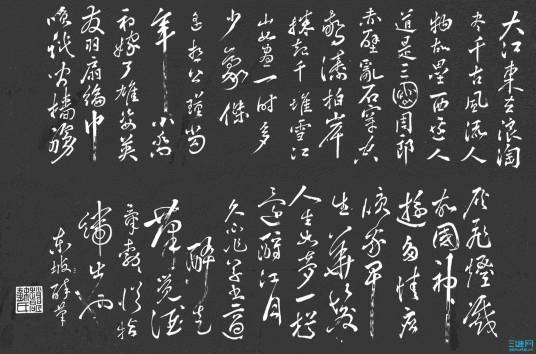 大江東去浪淘
尽千古風流人
物故壘西邊人
道是三國周郎
赤壁亂石穿空
驚濤拍岸
捲起千堆雪江
山如畫一時多
少豪傑
遙想公瑾當
年小喬
初嫁了雄姿英
發羽扇綸巾
間檣櫓
灰飛煙滅
故國神
遊多情應
笑我早
生華髮
人生如夢一樽
還酹江月
久不作草書適
醉走
筆覺酒
氣勃勃似指
端出也
東坡醉筆
三维网